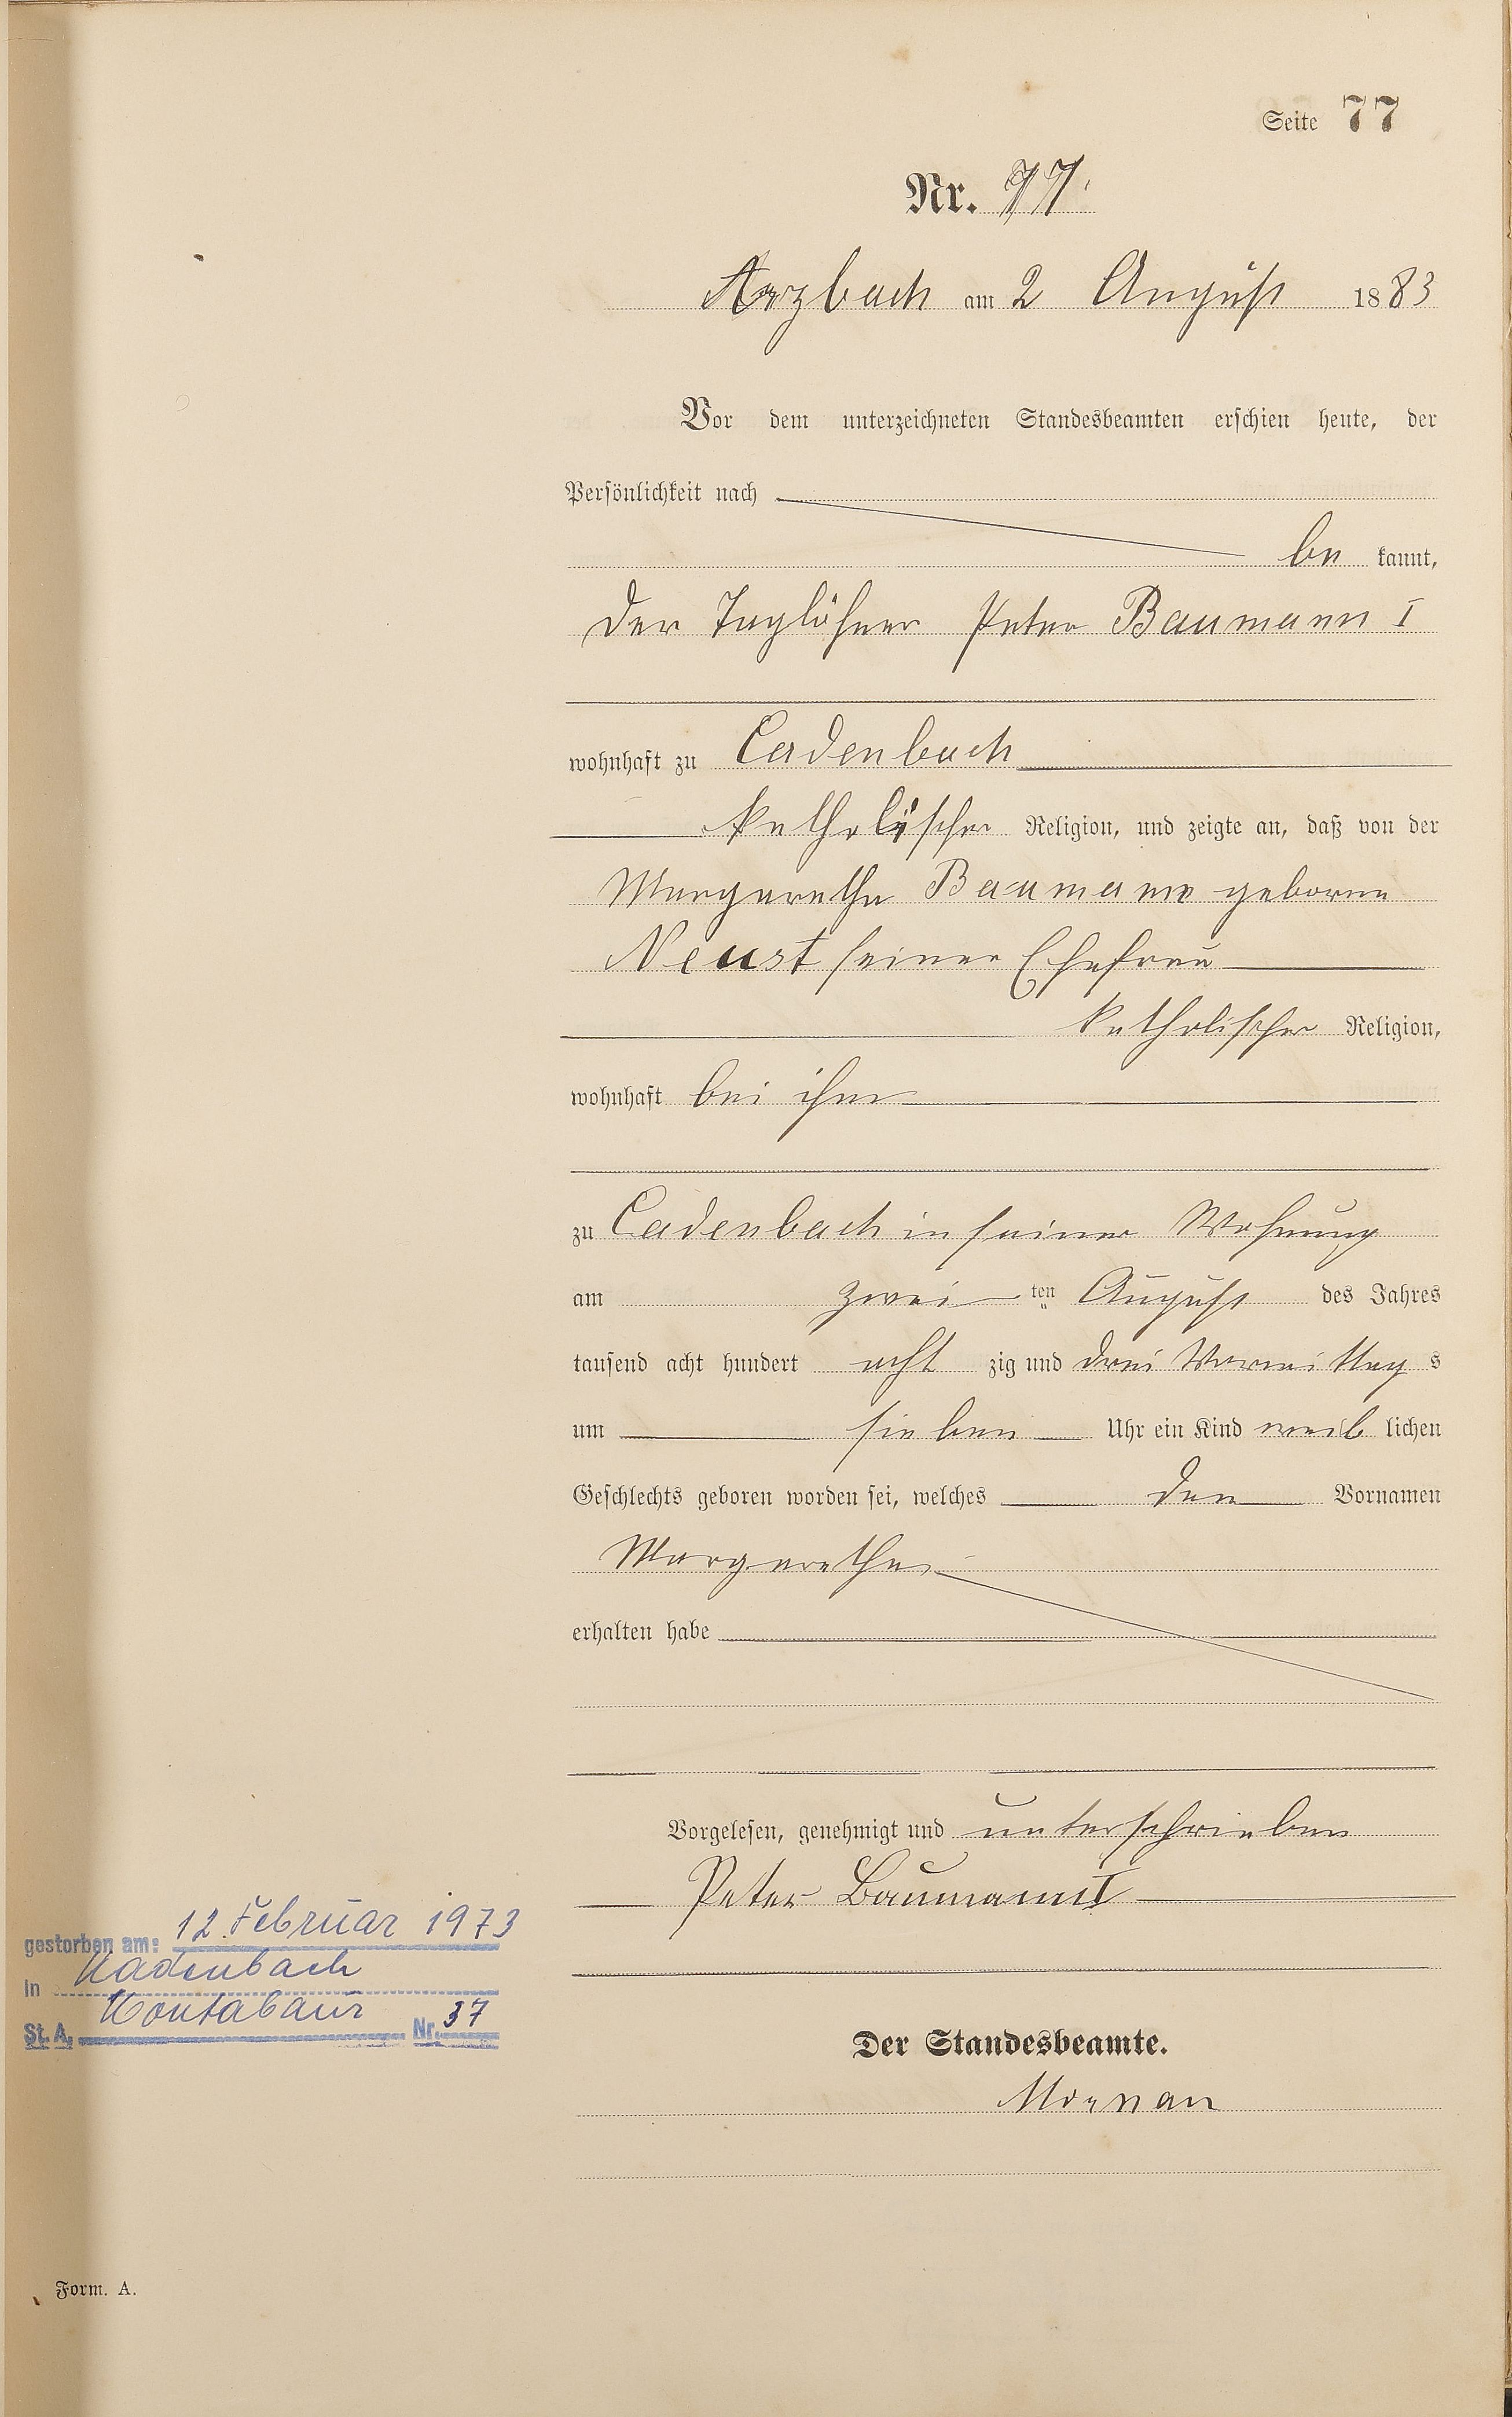 Seite 77
Nr. 77.
Arzbach am 2 August 1883
Vor dem unterzeichneten Standesbeamten erschien heute, der
Persönlichkeit nach
be kannt,
der Taglöhner Peter Baumann I
wohnhaft zu Cadenbach
katholischer Religion, und zeigte an, daß von der
Margarethe Baumann geborne
Neust seiner Ehefrau
katholischer Religion,
wohnhaft bei ihm
zu Cadenbach in seiner Wohnung
am zwei ten August des Jahres
tausend acht hundert acht zig und drei Vormittag s
um sieben Uhr ein Kind weib lichen
Geschlechts geboren worden sei, welches den Vornamen
Margarethe
erhalten habe
Vorgelesen, genehmigt und unterschrieben
Peter Baumann I
gestorben am: 12. Februar 1973
in Kadenbach
St. A. Montabaur Nr. 37
Der Standesbeamte.
Form. A.